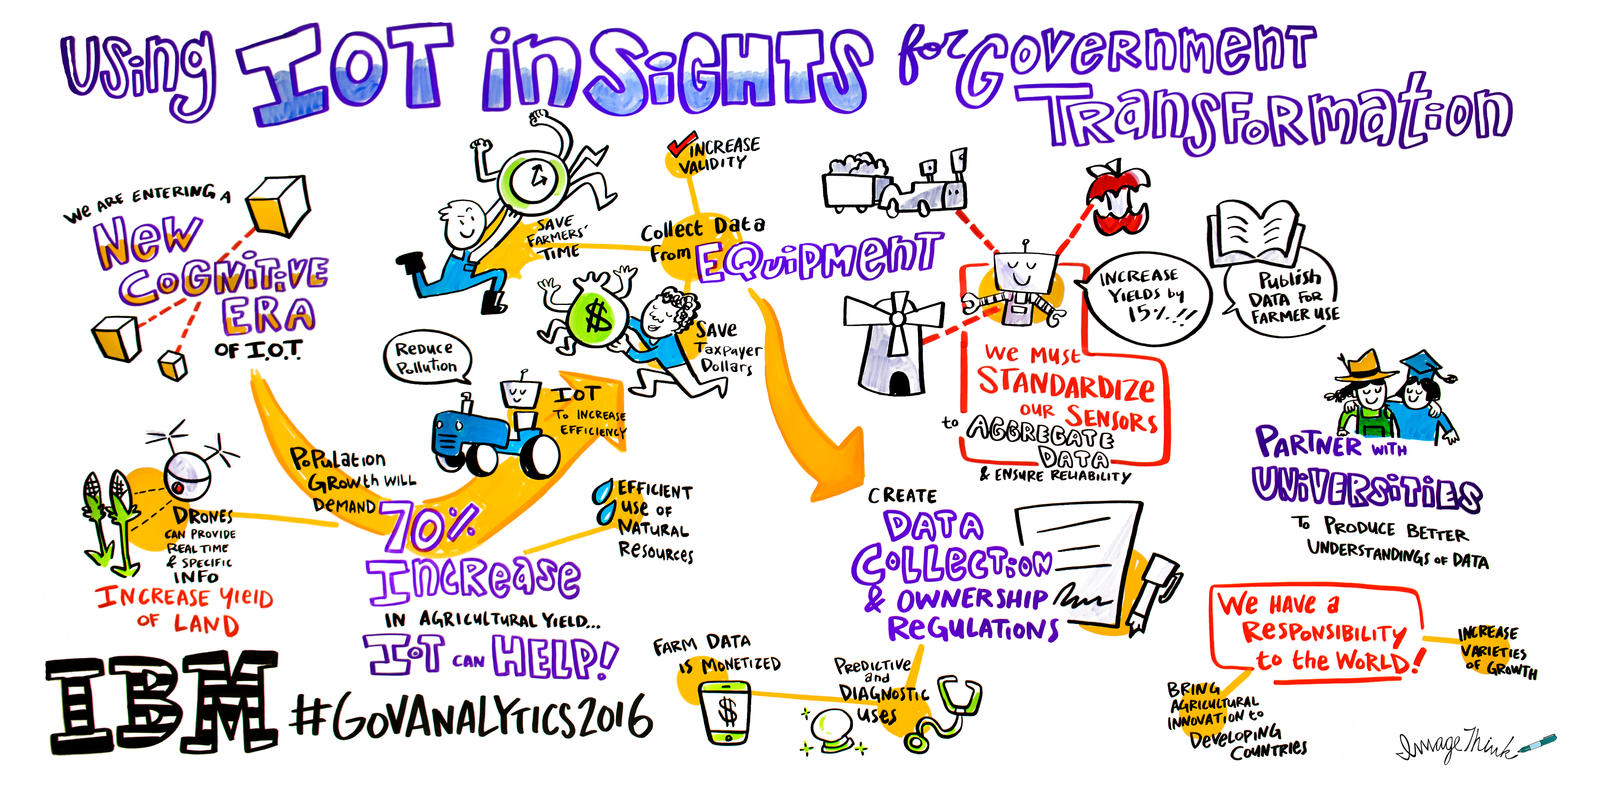 Using IOT inSiGHTS for Government
Transformation
We are entering a
New
Cognitive
Era
of I.O.T.
Save
Farmers'
Time
Increase
Validity
Collect Data
from Equipment
Save
Taxpayer
Dollars
Reduce
Pollution
IOT
To increase
efficiency
Population
Growth will
demand
70%
Increase
in agricultural yield...
IoT can HELP!
Drones
can provide
real time
& specific
info
Increase yield
of land
Efficient
use of
natural
resources
Increase
yields by
15%!!
Publish
data for
farmer use
We must
STANDARDIZE
our sensors
to AGGREGATE
DATA
& ensure reliability
Create
DATA
COLLECTION
& OWNERSHIP
REGULATIONS
Partner with
UNiVERSiTiES
to produce better
understandings of data
Farm data
is monetized
$
$
Predictive
and
Diagnostic
uses
We have a
Responsibility
to the World!
Increase
varieties
of growth
Bring
agricultural
innovation to
Developing
Countries
IBM #GovAnalytics2016
ImageThink